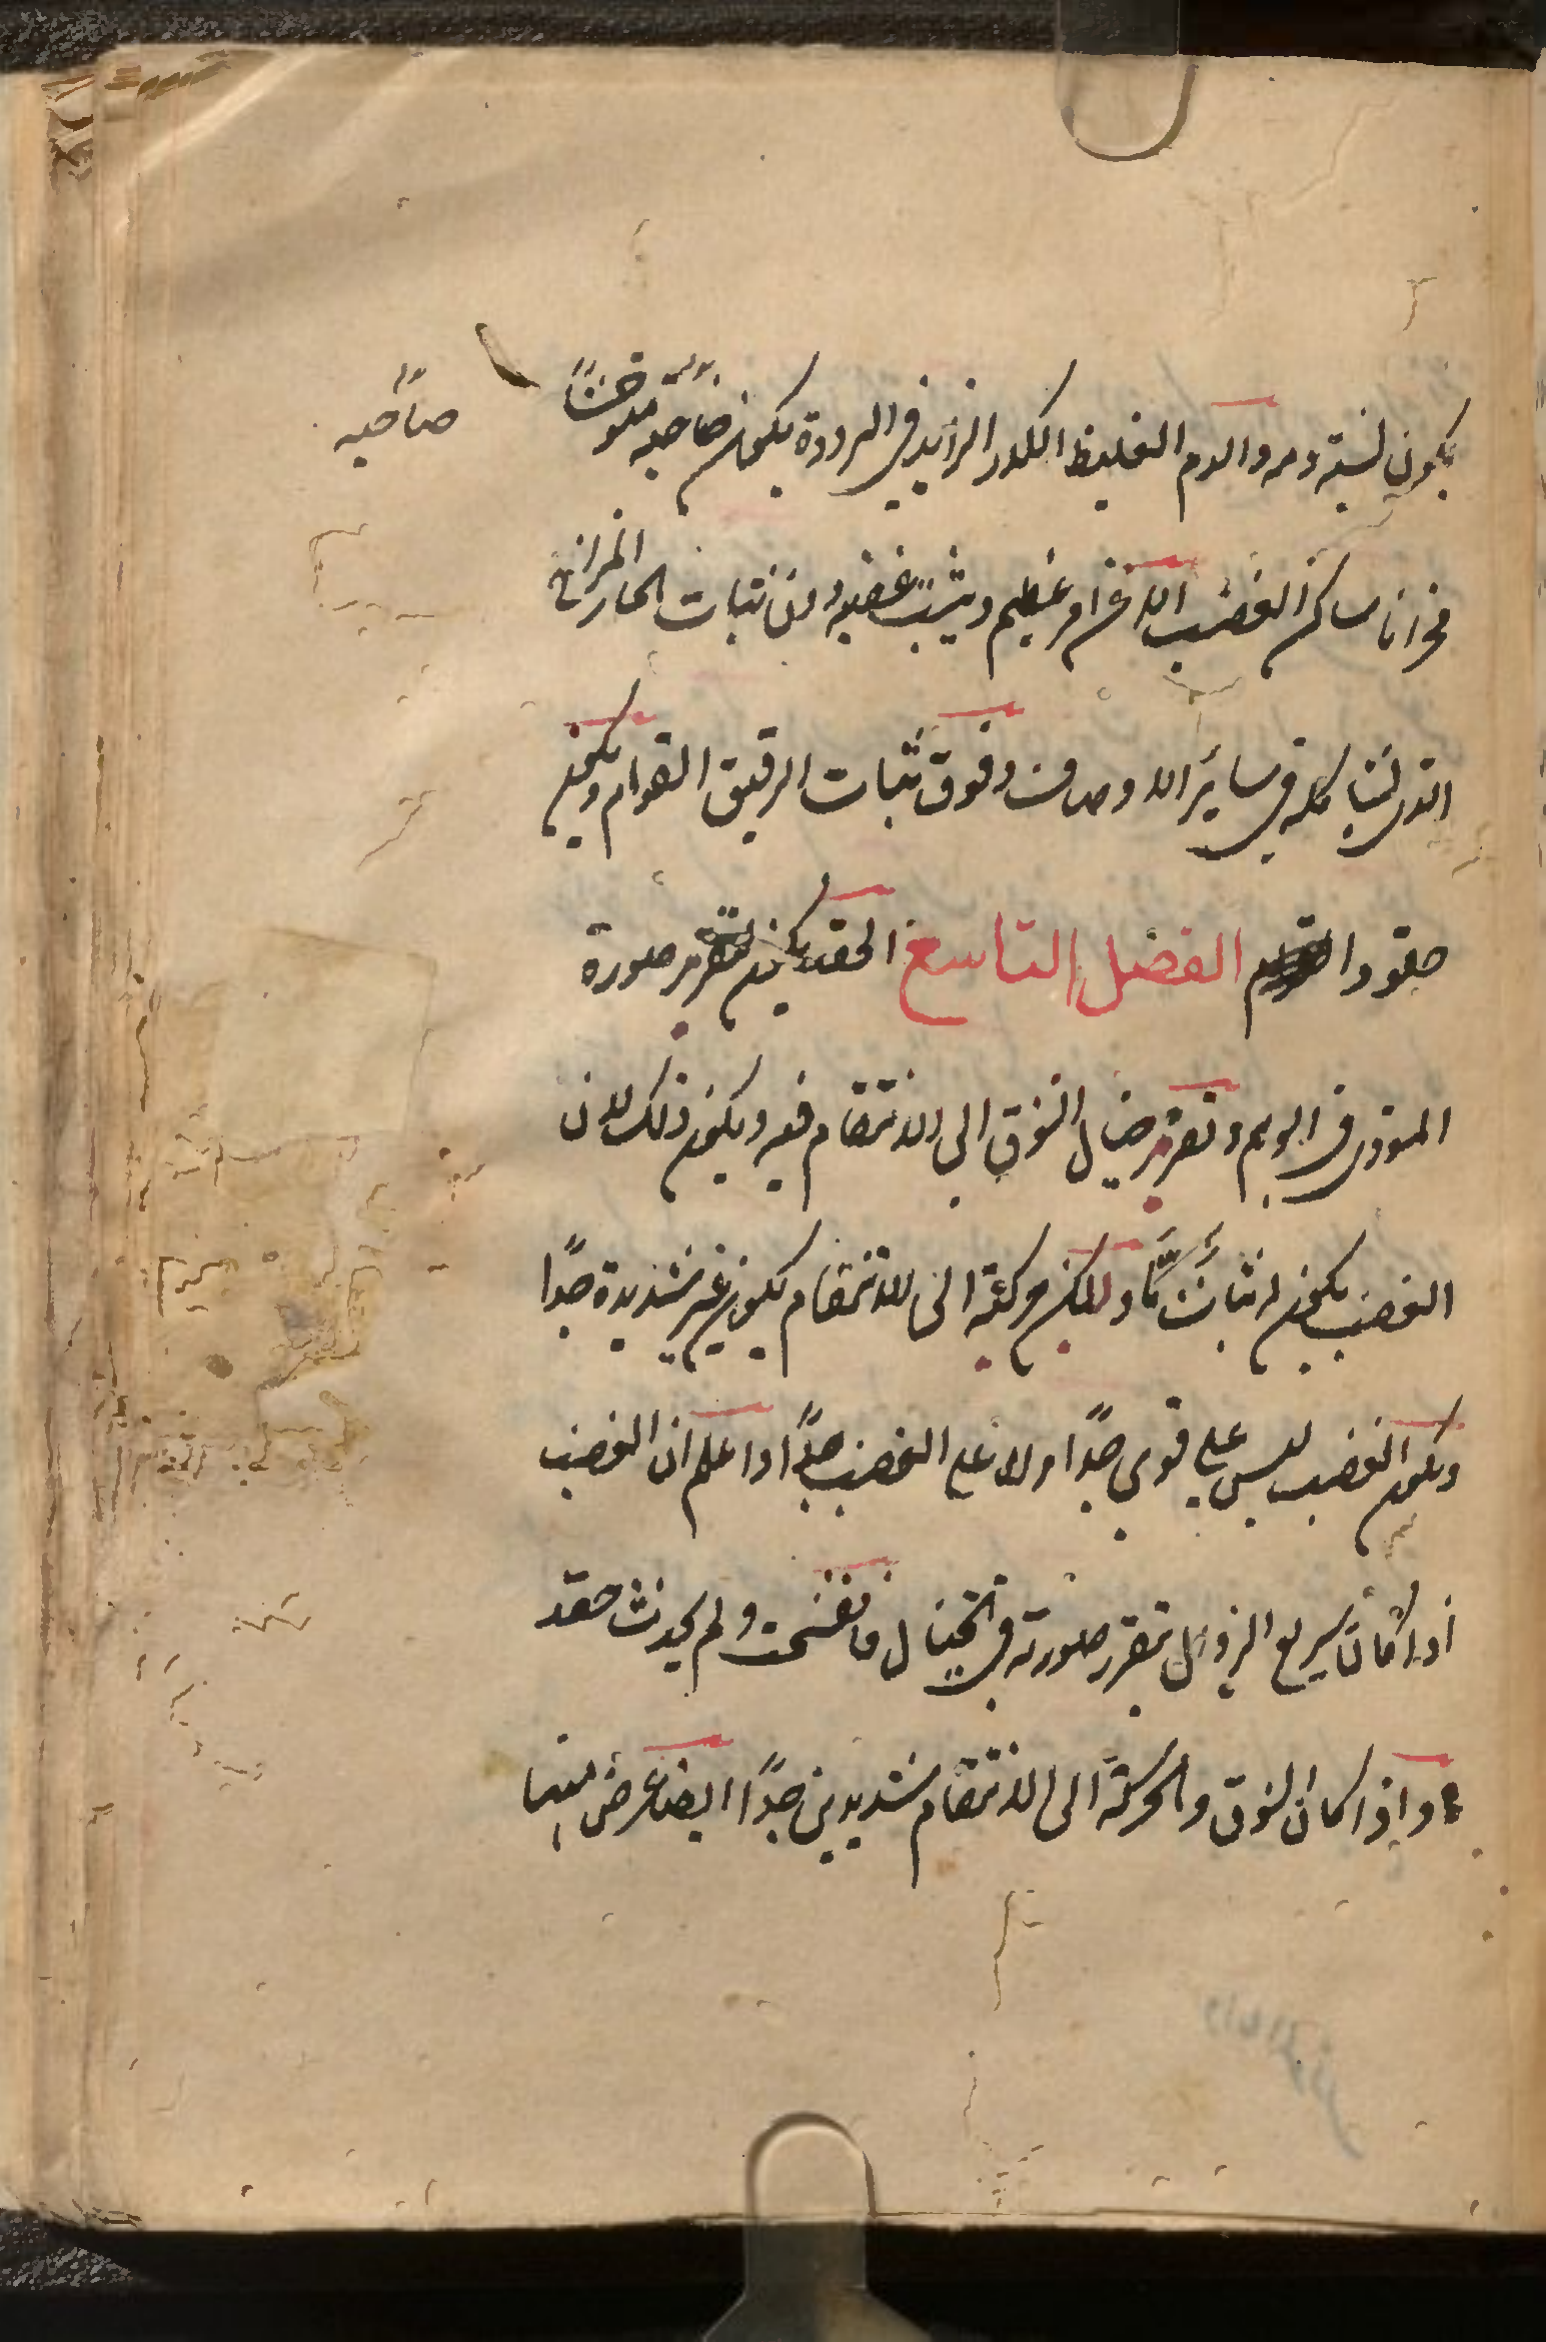 يكون لسته ومه والدم الغليظ الكدر الزايد في البرودة يكون صاحبه متوحشًا
صاحبه
محزانا ساكن الغضب الا عن امر عظيم ويثبت غضبه دون ثبات الحار المزاج
الذي يشاكله في ساير الاوصاف وفوق ثبات الرقيق القوام ويكون
حقودا الفصل التاسع الحقد يكون لتقرير صورة
الموذي في الوهم وتقرير خيال الشوق الى الانتقام فيه ويكون ذلك لان
الغضب يكون له ثبات ما ولان حركته الى الانتقام يكون غير شديدة جدًا
ويكون الغضب ليس على قوي جدًا ولا على الضعيف جدًا واعلم ان الغضب
اذا كان سريع الزوال لم تتقرر صورته في الخيال فانفسخت ولم يحدث حقد
واذا كان الشوق والحركة الى الانتقام شديدين جدًا ايضا عرض منهما